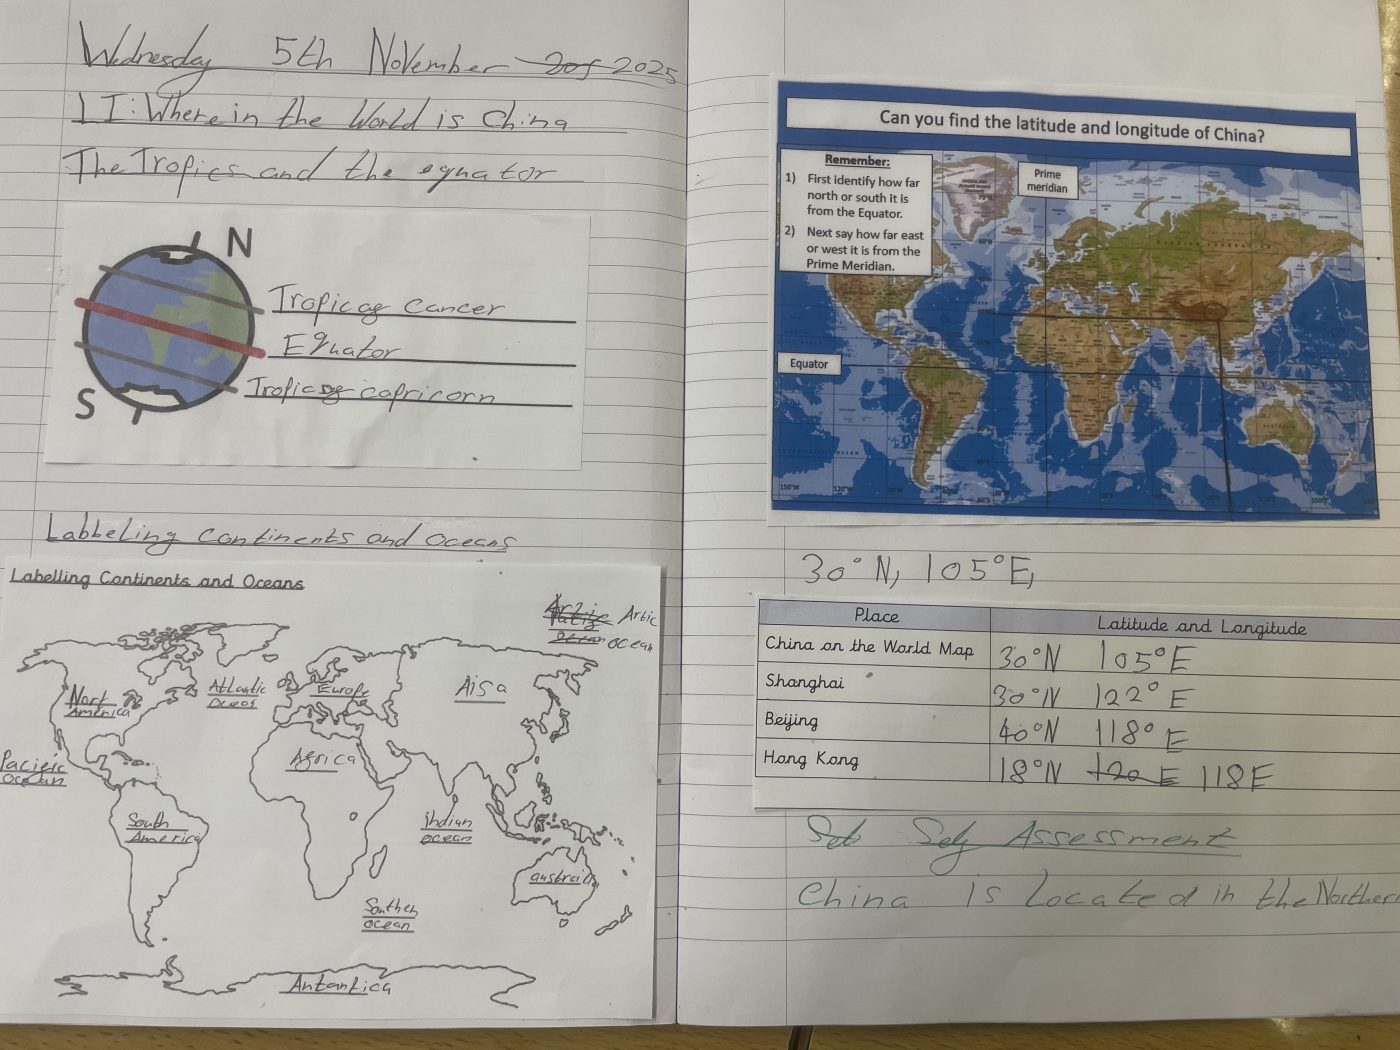 Wednesday 5th November 2025
LI: Where in the World is China
The Tropics and the equator
N
Tropic of cancer
Equator
Tropic of capricorn
S
Labbeling continents and oceans
Labelling Continents and Oceans
Artic
ocean
Nort
America
Atlantic
Ocean
Europe
Aisa
Pacific
ocean
Africa
South
America
indian
ocean
australia
Southen
ocean
Antantica
Can you find the latitude and longitude of China?
Remember:
1) First identify how far
north or south it is
from the Equator.
2) Next say how far east
or west it is from the
Prime Meridian.
Prime
meridian
Equator
30°N, 105°E,
Place Latitude and Longitude
China on the World Map 30°N 105°E
Shanghai 30°N 122°E
Beijing 40°N 118°E
Hong Kong 18°N 120 E 118E
Self Assessment
China is Located in the Northern